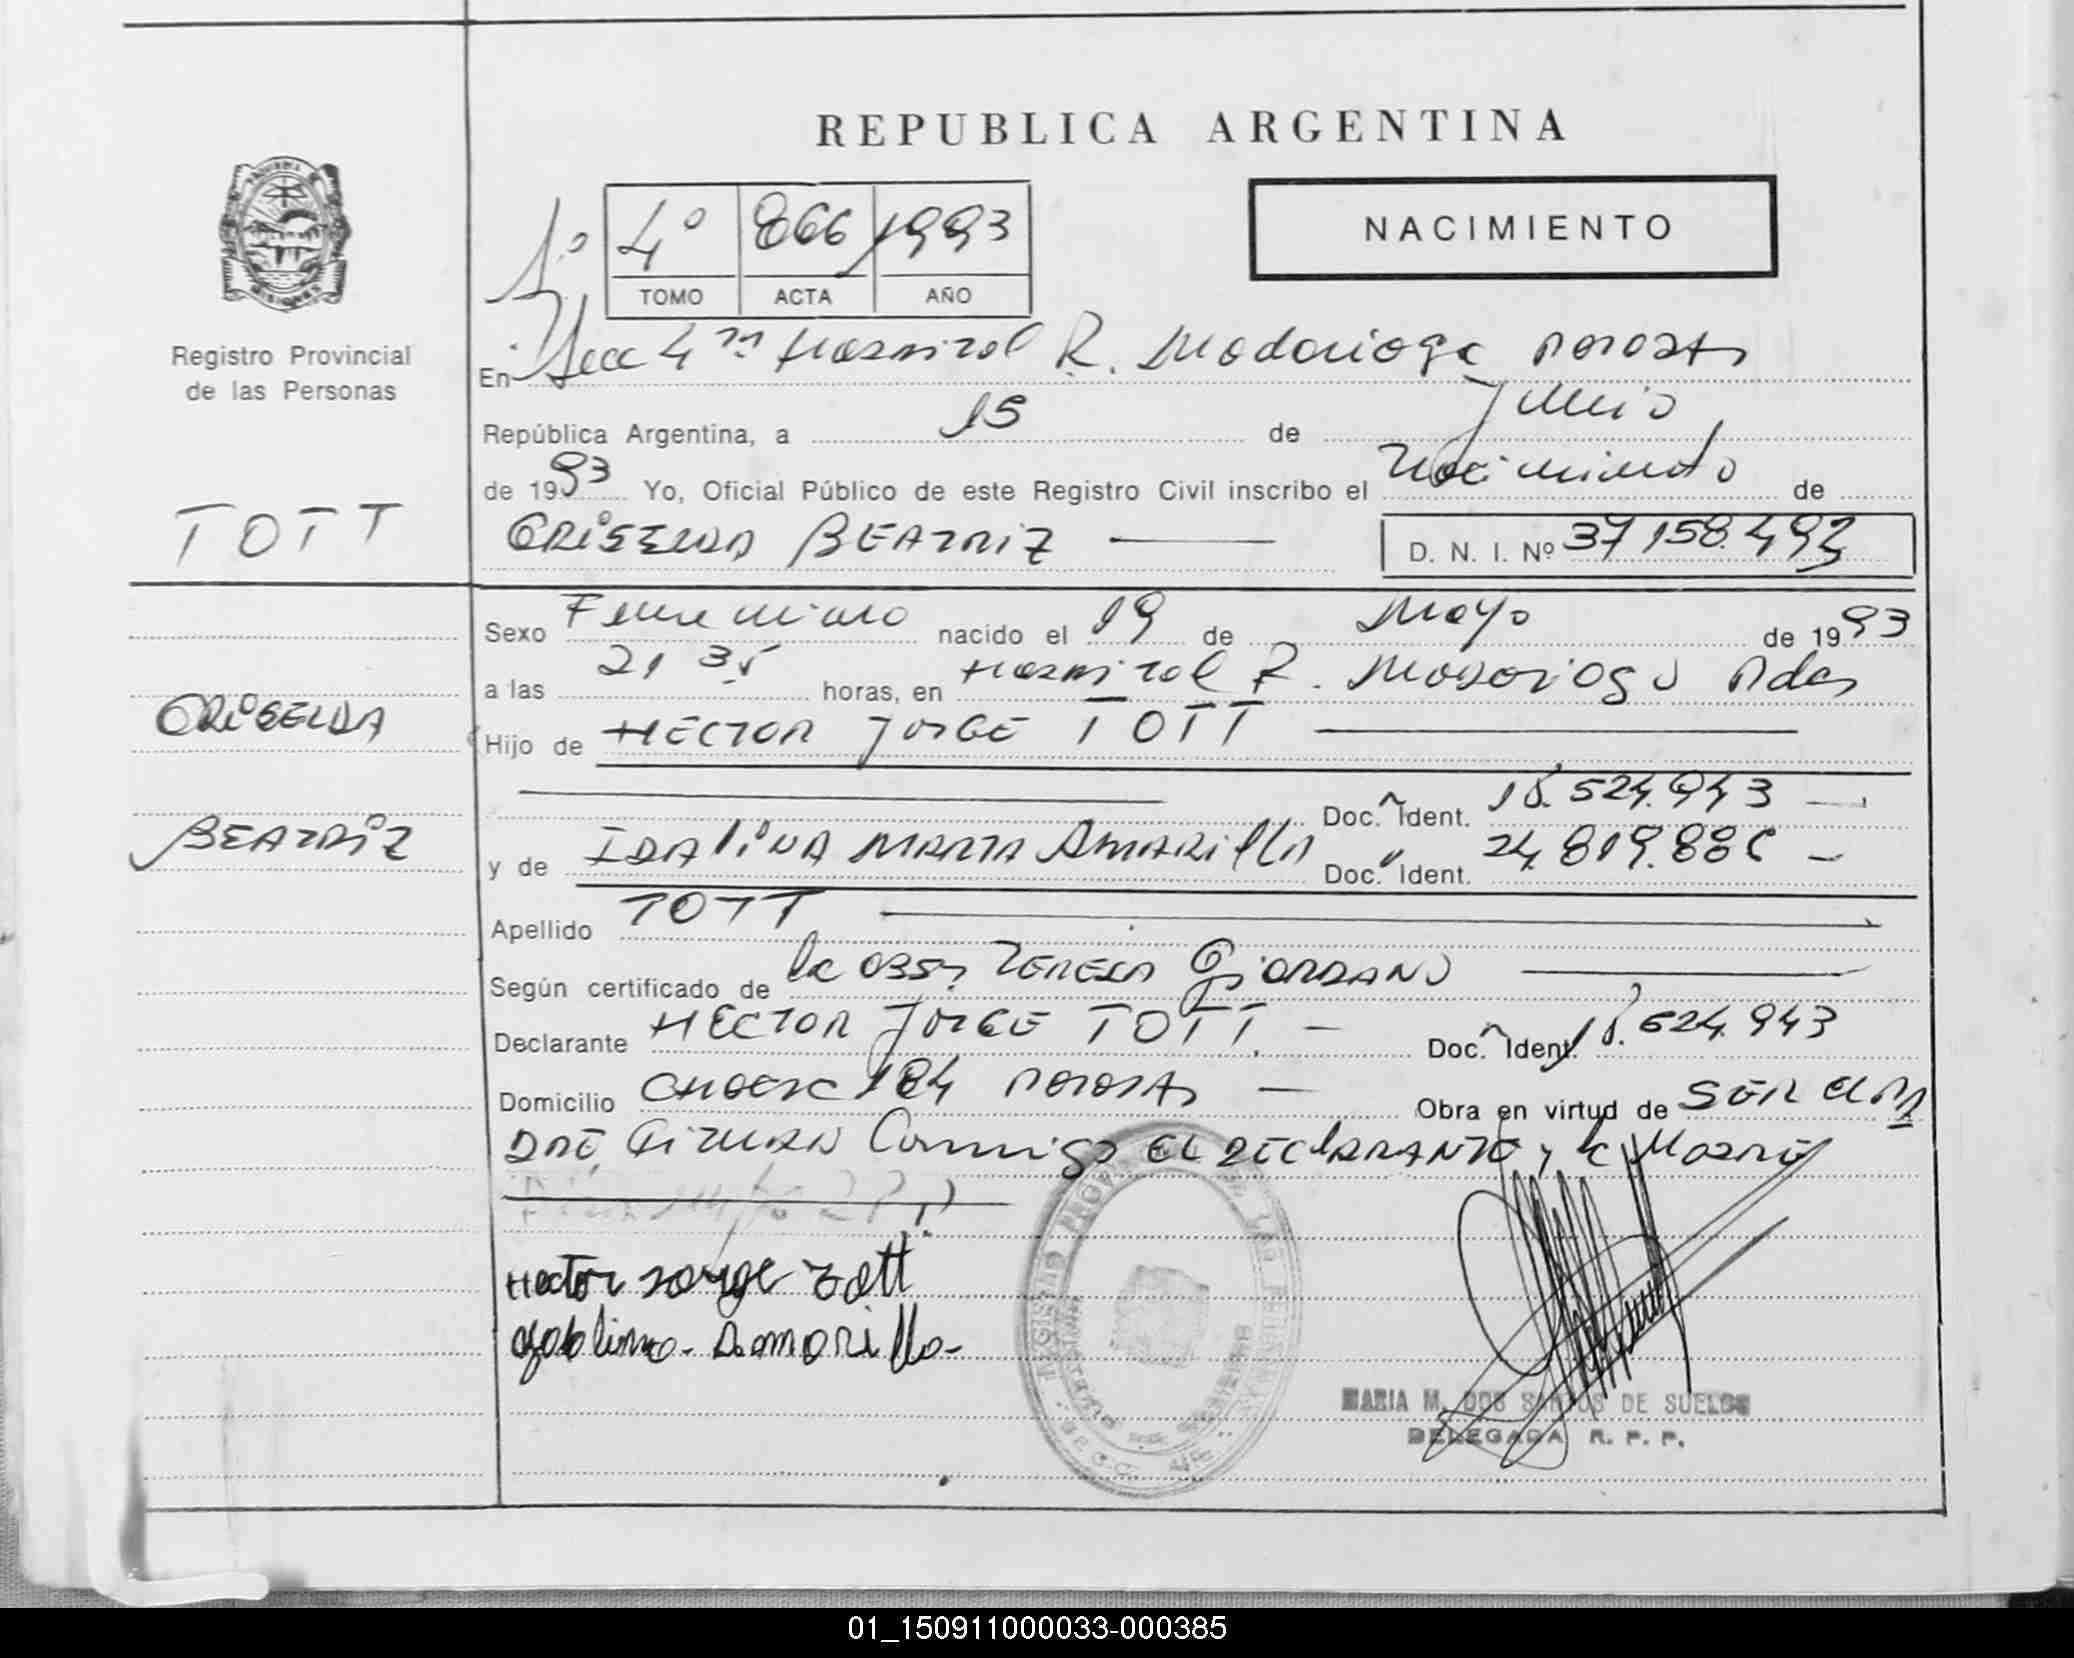 REPUBLICA ARGENTINA
NACIMIENTO
1º 4º 866 1993
TOMO ACTA AÑO
Registro Provincial
de las Personas
En Secc 4ta Hospital R. Madariaga Posadas
República Argentina, a 15 de Junio
de 1993 Yo, Oficial Público de este Registro Civil inscribo el Nacimiento de
TOTT
GRISELDA BEATRIZ
D. N. I. Nº 37 158.493
Sexo Femenino nacido el 19 de Mayo de 1993
a las 21 35 horas, en Hospital R. Madariaga Pdas
GRISELDA
Hijo de HECTOR JORGE TOTT
Doc. Ident. 18.524.943
BEATRIZ
y de IDALINA MARTA AMARILLA Doc. Ident. 24.819.886
Apellido TOTT
Según certificado de la Obst. TERESA GIORDANO
Declarante HECTOR JORGE TOTT. Doc. Ident. 18.524.943
Domicilio 184 POSADAS Obra en virtud de SER EL PA
DRE, FIRMAN Conmigo EL DECLARANTE y la MADRE
Hector Jorge Tott
Amarilla
MARIA M. DOS SANTOS DE SUELDO
DELEGADA R. P. P.
01_150911000033-000385